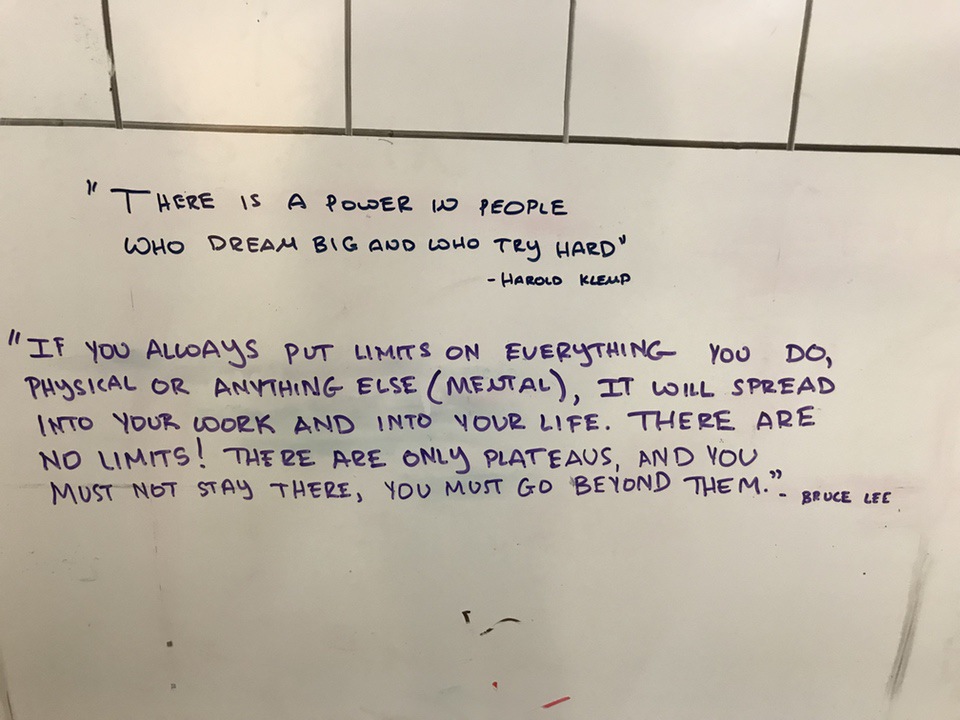 "THERE IS A POWER IN PEOPLE
WHO DREAM BIG AND WHO TRY HARD"
-HAROLD KLEMP
"IF YOU ALWAYS PUT LIMITS ON EVERYTHING YOU DO,
PHYSICAL OR ANYTHING ELSE (MENTAL), IT WILL SPREAD
INTO YOUR WORK AND INTO YOUR LIFE. THERE ARE
NO LIMITS! THERE ARE ONLY PLATEAUS, AND YOU
MUST NOT STAY THERE, YOU MUST GO BEYOND THEM."- BRUCE LEE